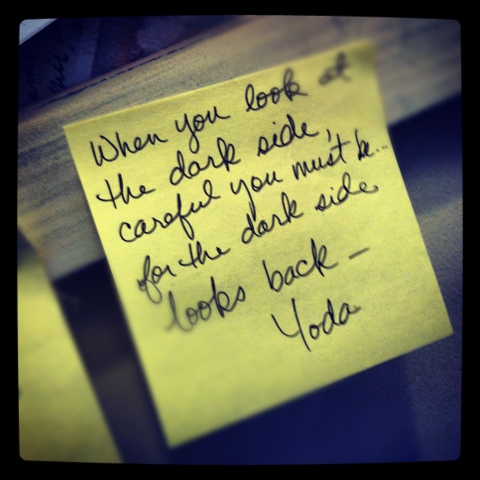 When you look at
the dark side,
careful you must be...
for the dark side
looks back —
Yoda